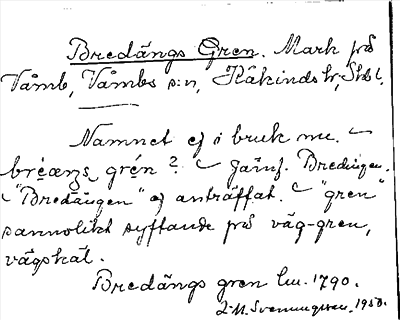 Bredängs Gren. Mark på
Våmb, Våmbs s:n, Kåkinds hr, Skbl.
Namnet ej i bruk nu. –
bréæŋs grén? – Jämf. Bredängen.
– "Bredängen" ej anträffat. – "gren"
sannolikt syftande på väg-gren,
vägskäl.
Bredängs gren lm. 1790.
J.M. Svenungsson, 1950.